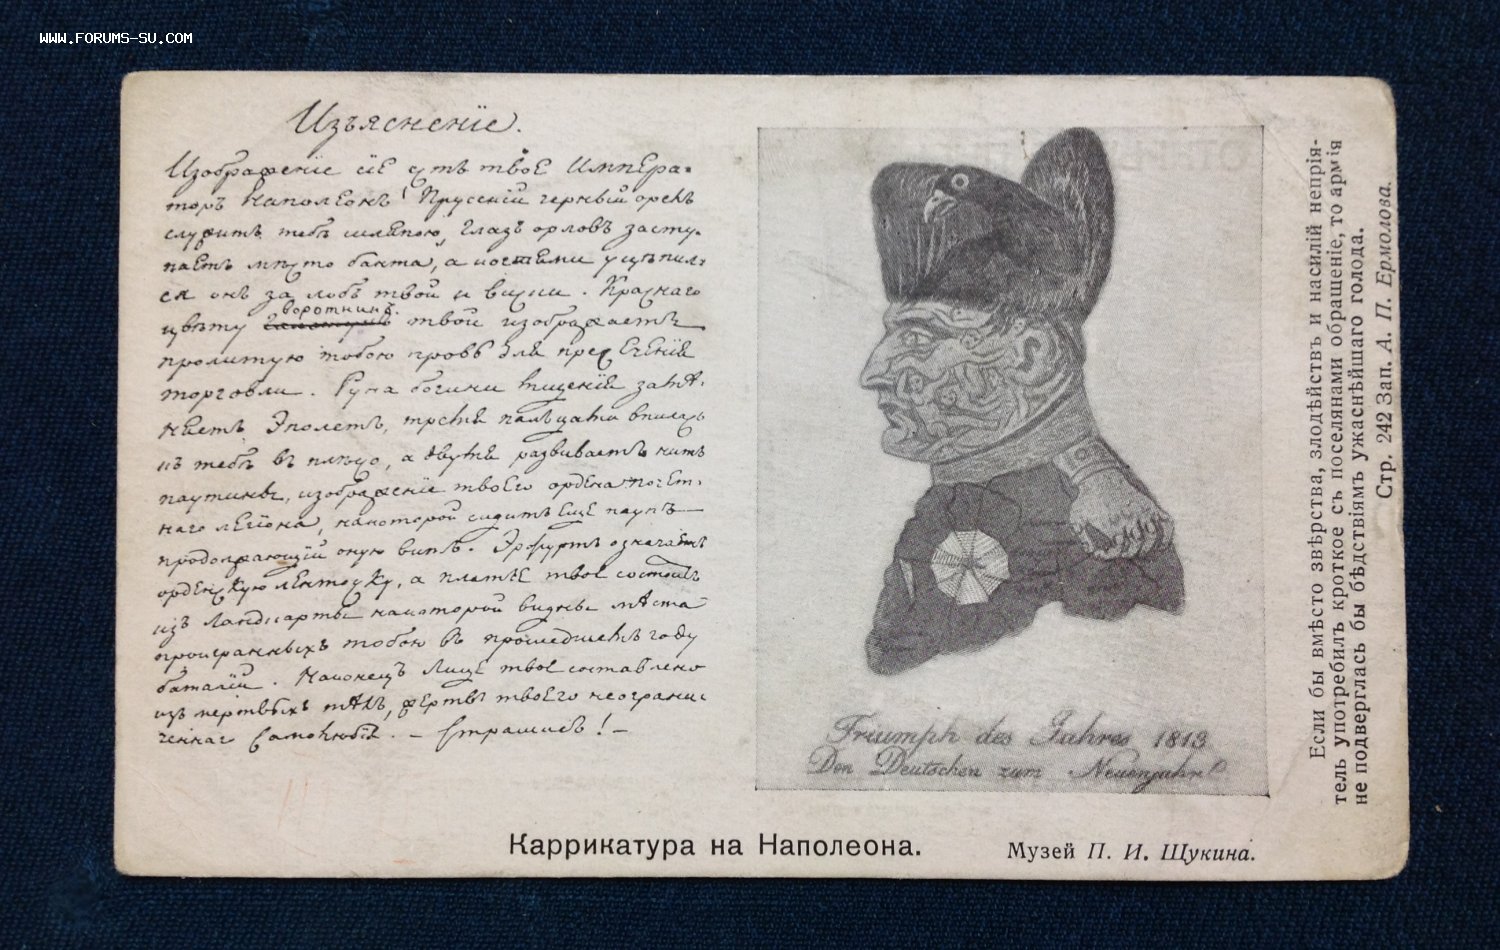 WWW.FORUMS-SU.COM
Изъясненіе.
Изображеніе сіе суть твое Импера-
торъ Наполеонъ! Прусскій черный орелъ
служитъ тебѣ шляпою, глазъ орловъ засту-
паетъ мѣсто банта, а когтями уцѣпил-
ся онъ за лобъ твой и виски. Краснаго
воротникъ.
цвѣту твой изображаетъ
пролитую тобою кровь для пресеченія
торговли. Рука богини мщенія замѣ-
няетъ Эполетъ, тремя пальцами впилась
къ тебѣ въ плѣчо, а двумя развиваетъ нить
паутины, изображеніе твоего ордена почет-
наго легіона, на которой сидитъ еще паукъ
продолжающій оную вить. Эрфуртъ означаетъ
орденскую ленточку, а платье твое состоитъ
изъ ландкарты на которой видны мѣста
проигранныхъ тобою въ прошедшемъ году
баталіи. Наконецъ Лице твое составлено
изъ мертвыхъ тѣлъ, жертвъ твоего неограни-
ченнаго Самолюбія. — Страшись! —
Triumph des Jahres 1813
Den Deutschen zum Neuenjahr
Каррикатура на Наполеона.
Музей П. И. Щукина.
Если бы вмѣсто звѣрства, злодѣйствъ и насилій непрія-
тель употребилъ кроткое съ поселянами обращеніе, то армія
не подверглась бы бѣдствіямъ ужаснѣйшаго голода.
Стр. 242 Зап. А. П. Ермолова.